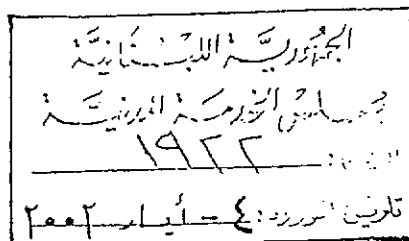 الجمهوريّة اللبنانيّة
مجلس الخدمة المدنيّة
الرقم: ١٩٢٢
تاريخ الورود: ٤ - أيار - ٢٠٠٢